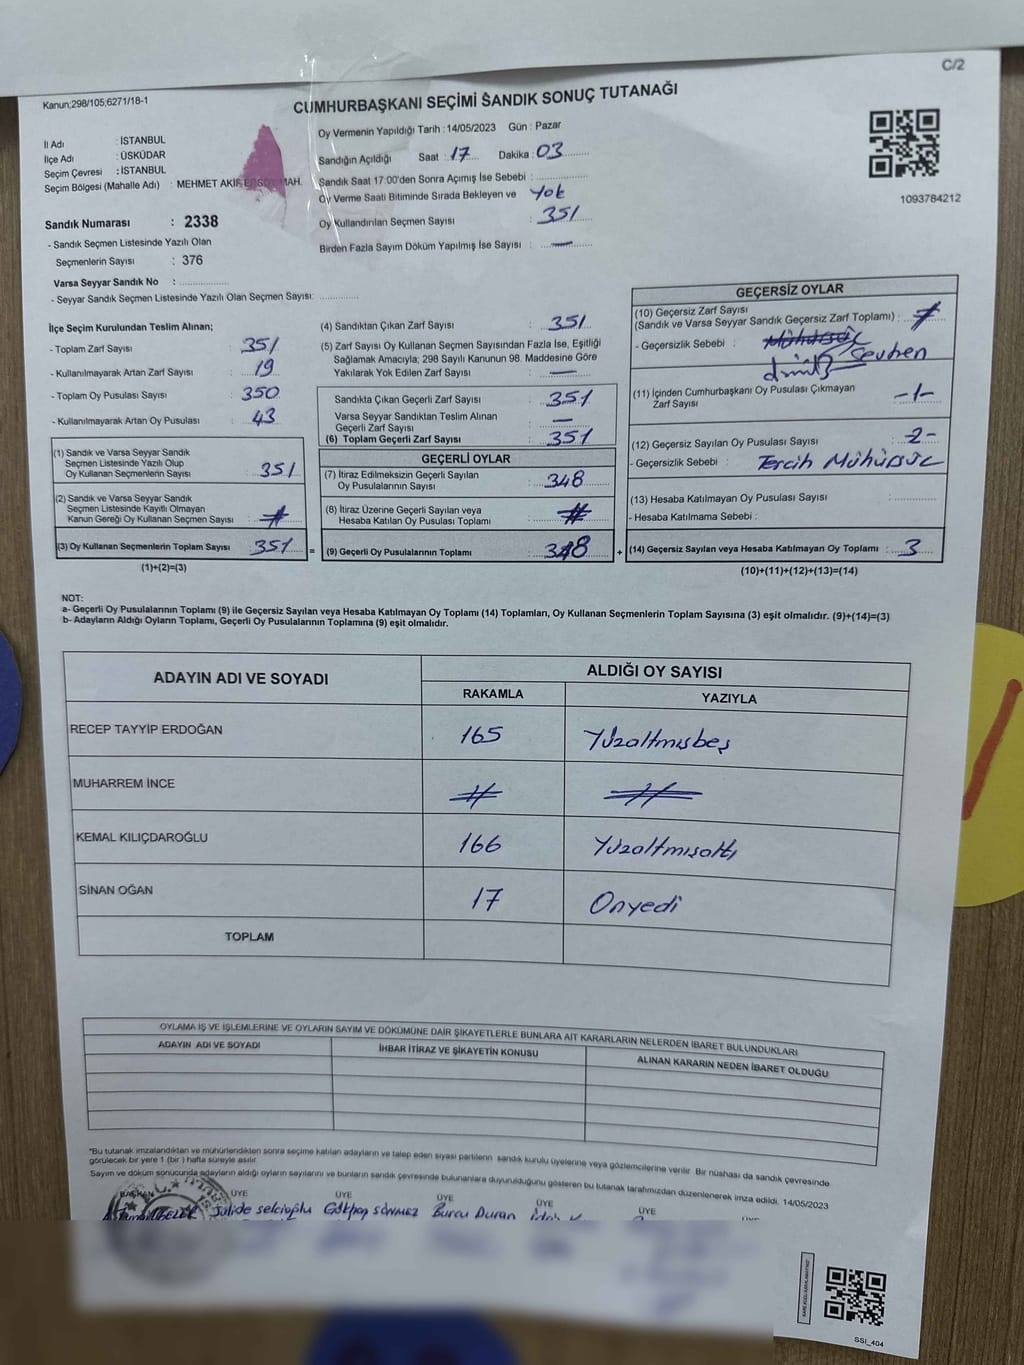 C/2
Kanun;298/105;6271/18-1
CUMHURBAŞKANI SEÇİMİ SANDIK SONUÇ TUTANAĞI
İl Adı : İSTANBUL
İlçe Adı : ÜSKÜDAR
Seçim Çevresi : İSTANBUL
Seçim Bölgesi (Mahalle Adı) : MEHMET AKİF ERSOY MAH.
Sandık Numarası : 2338
- Sandık Seçmen Listesinde Yazılı Olan
Seçmenlerin Sayısı : 376
Varsa Seyyar Sandık No : ..............
- Seyyar Sandık Seçmen Listesinde Yazılı Olan Seçmen Sayısı: ............
Oy Vermenin Yapıldığı Tarih : 14/05/2023 Gün : Pazar
Sandığın Açıldığı Saat : 17 Dakika : 03
Sandık Saat 17:00'den Sonra Açımış İse Sebebi :
Oy Verme Saati Bitiminde Sırada Bekleyen ve Yok
Oy Kullandırılan Seçmen Sayısı : 351
Birden Fazla Sayım Döküm Yapılmış İse Sayısı : —
1093784212
İlçe Seçim Kurulundan Teslim Alınan;
- Toplam Zarf Sayısı : 351
- Kullanılmayarak Artan Zarf Sayısı : 19
- Toplam Oy Pusulası Sayısı : 350
- Kullanılmayarak Artan Oy Pusulası : 43
(1) Sandık ve Varsa Seyyar Sandık
Seçmen Listesinde Yazılı Olup
Oy Kullanan Seçmenlerin Sayısı : 351
(2) Sandık ve Varsa Seyyar Sandık
Seçmen Listesinde Kayıtlı Olmayan
Kanun Gereği Oy Kullanan Seçmen Sayısı :
(3) Oy Kullanan Seçmenlerin Toplam Sayısı : 351 =
(1)+(2)=(3)
(4) Sandıktan Çıkan Zarf Sayısı : 351
(5) Zarf Sayısı Oy Kullanan Seçmen Sayısından Fazla İse, Eşitliği
Sağlamak Amacıyla; 298 Sayılı Kanunun 98. Maddesine Göre
Yakılarak Yok Edilen Zarf Sayısı : —
Sandıkta Çıkan Geçerli Zarf Sayısı : 351
Varsa Seyyar Sandıktan Teslim Alınan
Geçerli Zarf Sayısı : —
(6) Toplam Geçerli Zarf Sayısı : 351
GEÇERLİ OYLAR
(7) İtiraz Edilmeksizin Geçerli Sayılan
Oy Pusulalarının Sayısı : 348
(8) İtiraz Üzerine Geçerli Sayılan veya
Hesaba Katılan Oy Pusulası Toplamı :
(9) Geçerli Oy Pusulalarının Toplamı : 348 +
GEÇERSİZ OYLAR
(10) Geçersiz Zarf Sayısı
(Sandık ve Varsa Seyyar Sandık Geçersiz Zarf Toplamı) :
- Geçersizlik Sebebi :
(11) İçinden Cumhurbaşkanı Oy Pusulası Çıkmayan
Zarf Sayısı : -1-
(12) Geçersiz Sayılan Oy Pusulası Sayısı : -2-
- Geçersizlik Sebebi : Tercih Mühürsüz
(13) Hesaba Katılmayan Oy Pusulası Sayısı :
- Hesaba Katılmama Sebebi :
(14) Geçersiz Sayılan veya Hesaba Katılmayan Oy Toplamı : 3
(10)+(11)+(12)+(13)=(14)
NOT:
a- Geçerli Oy Pusulalarının Toplamı (9) ile Geçersiz Sayılan veya Hesaba Katılmayan Oy Toplamı (14) Toplamları, Oy Kullanan Seçmenlerin Toplam Sayısına (3) eşit olmalıdır. (9)+(14)=(3)
b- Adayların Aldığı Oyların Toplamı, Geçerli Oy Pusulalarının Toplamına (9) eşit olmalıdır.
ADAYIN ADI VE SOYADI ALDIĞI OY SAYISI
RAKAMLA YAZIYLA
RECEP TAYYİP ERDOĞAN 165 Yüzaltmışbeş
MUHARREM İNCE
KEMAL KILIÇDAROĞLU 166 Yüzaltmışaltı
SİNAN OĞAN 17 Onyedi
TOPLAM
OYLAMA İŞ VE İŞLEMLERİNE VE OYLARIN SAYIM VE DÖKÜMÜNE DAİR ŞİKAYETLERLE BUNLARA AİT KARARLARIN NELERDEN İBARET BULUNDUKLARI
ADAYIN ADI VE SOYADI İHBAR İTİRAZ VE ŞİKAYETİN KONUSU ALINAN KARARIN NEDEN İBARET OLDUĞU
*Bu tutanak imzalandıktan ve mühürlendikten sonra seçime katılan adayların ve talep eden siyasi partilerin sandık kurulu üyelerine veya gözlemcilerine verilir. Bir nüshası da sandık çevresinde
görülecek bir yere 1 (bir ) hafta süreyle asılır.
Sayım ve döküm sonucunda adayların aldığı oyların sayılarını ve bunların sandık çevresinde bulunanlara duyurulduğunu gösteren bu tutanak tarafımızdan düzenlenerek imza edildi. 14/05/2023
BAŞKAN ÜYE ÜYE ÜYE ÜYE ÜYE
Julide selcioğlu Gökhan SÖNMEZ Burcu Duran
SSI_404